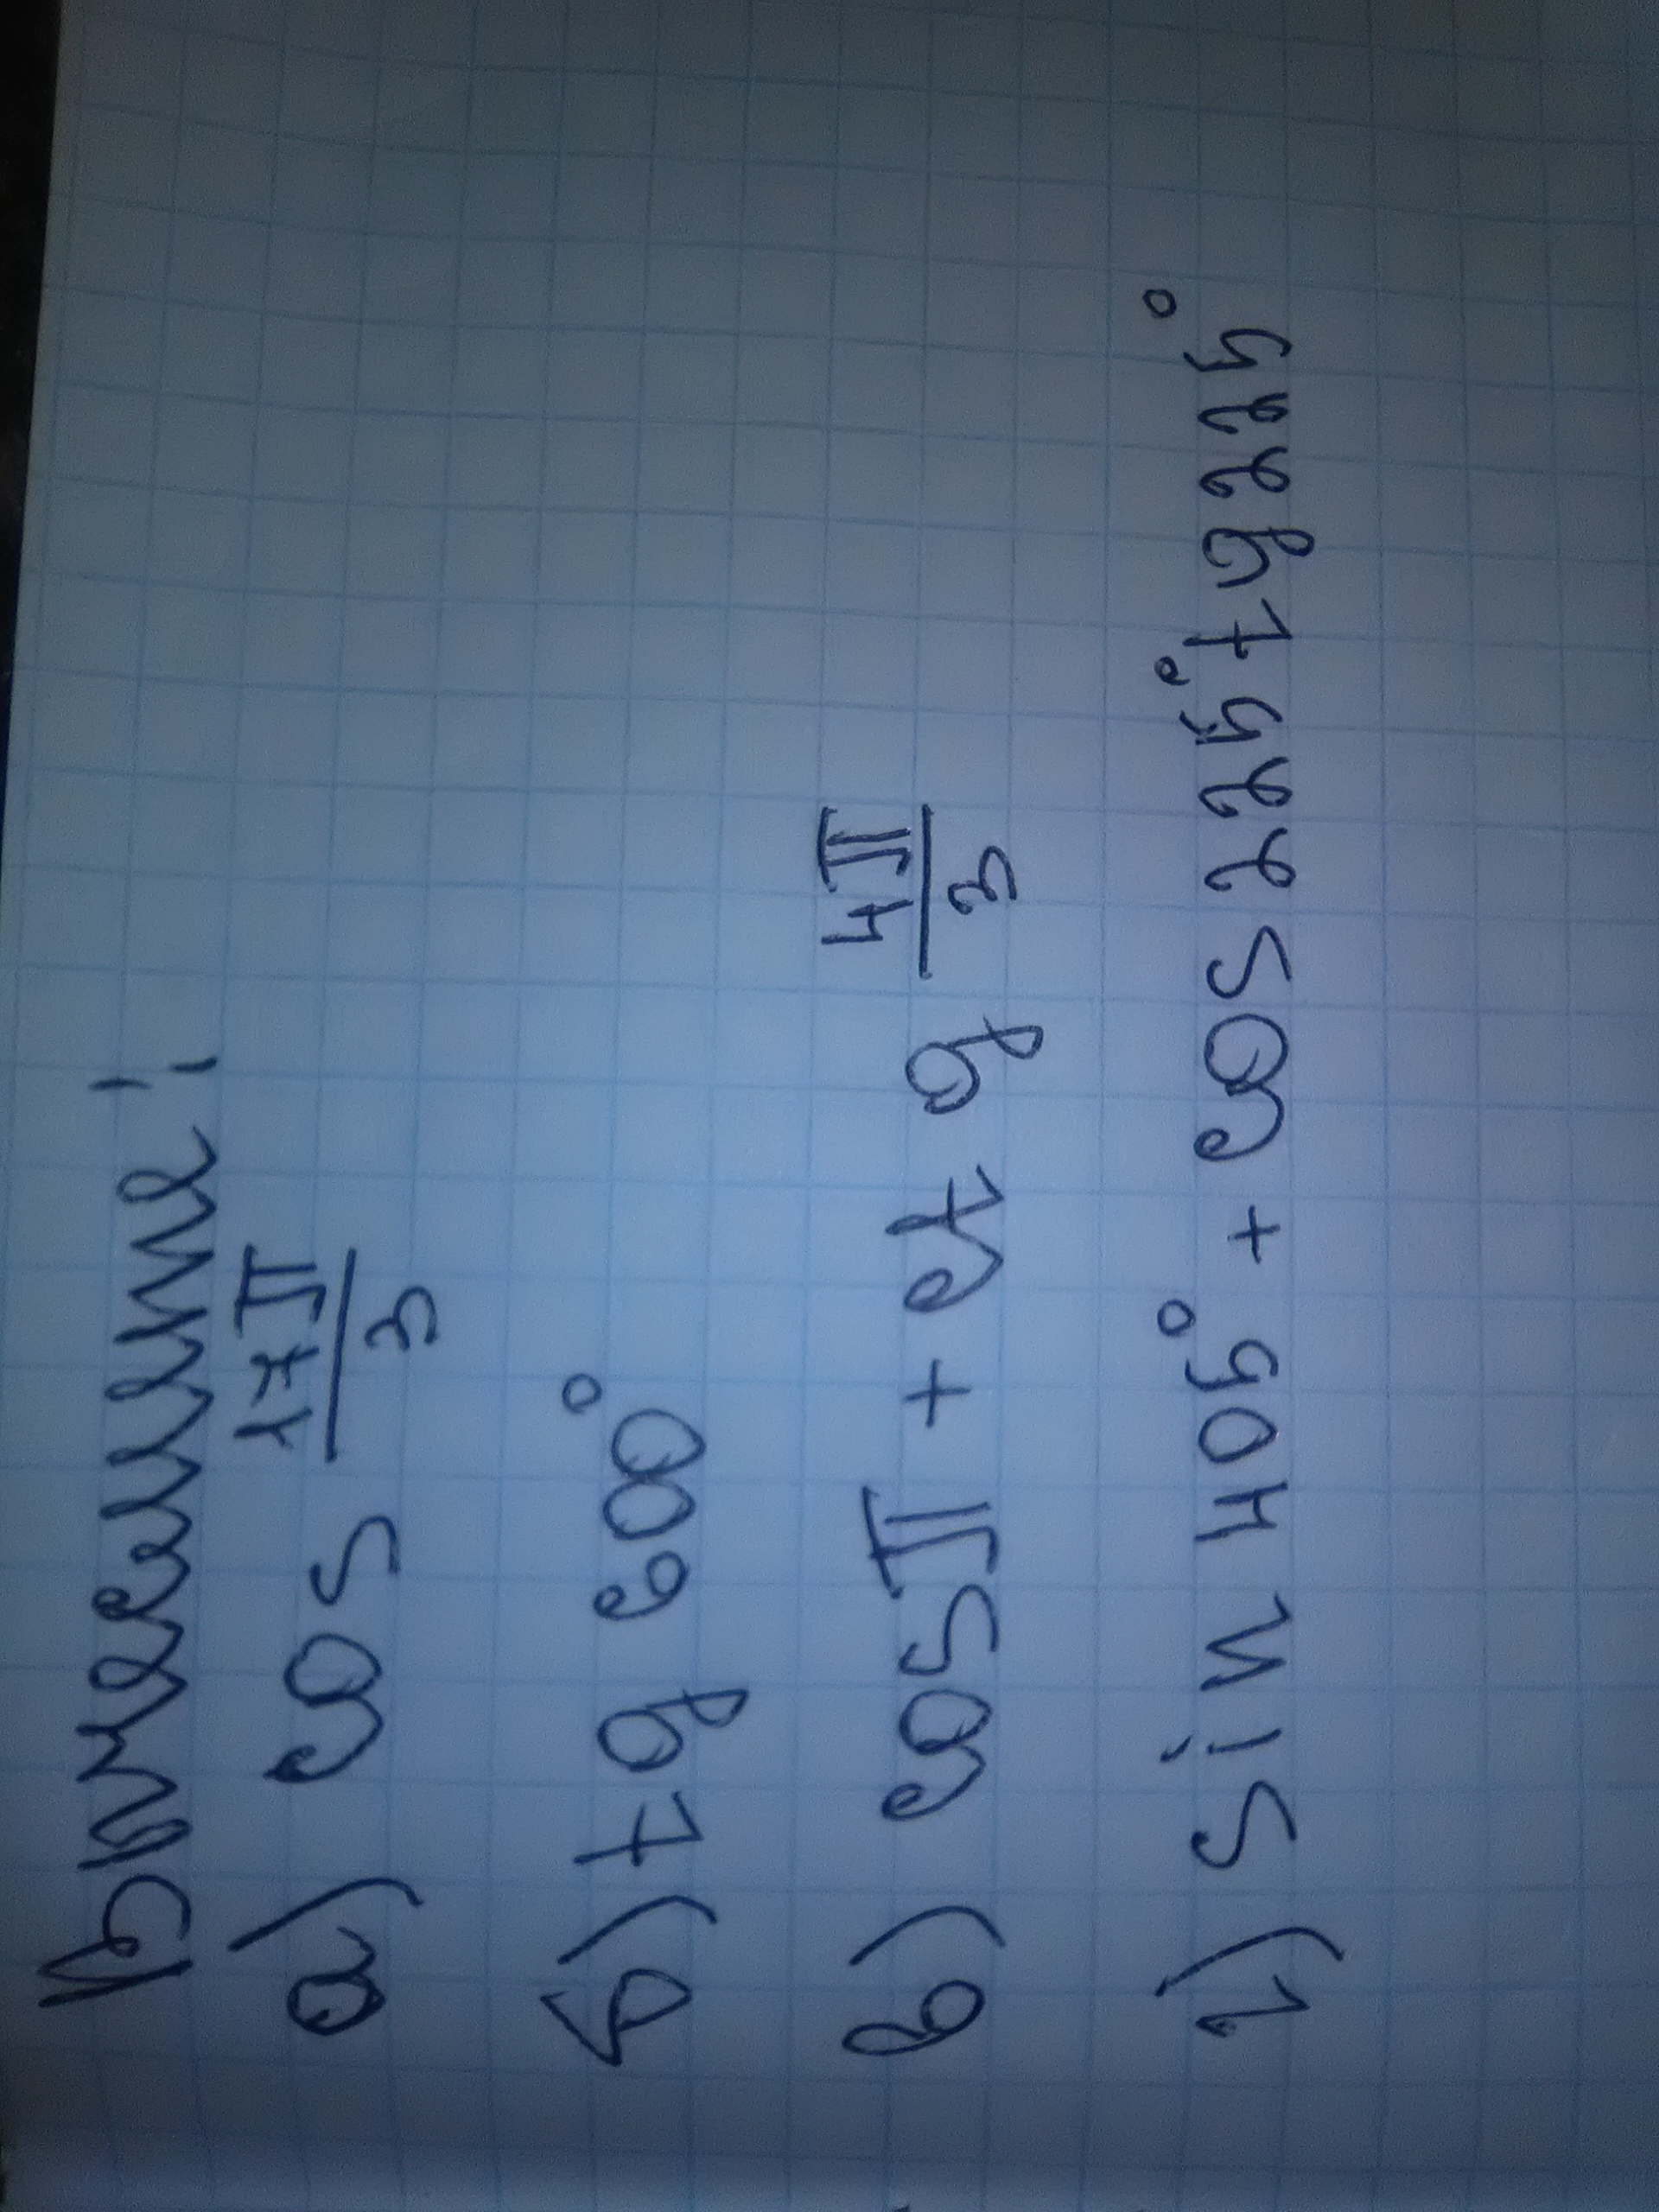 Вычислите:
а) cos 17π/3
б) tg 600°
в) cos π + ctg 4π/3
г) sin 405° + cos 225° tg 225°